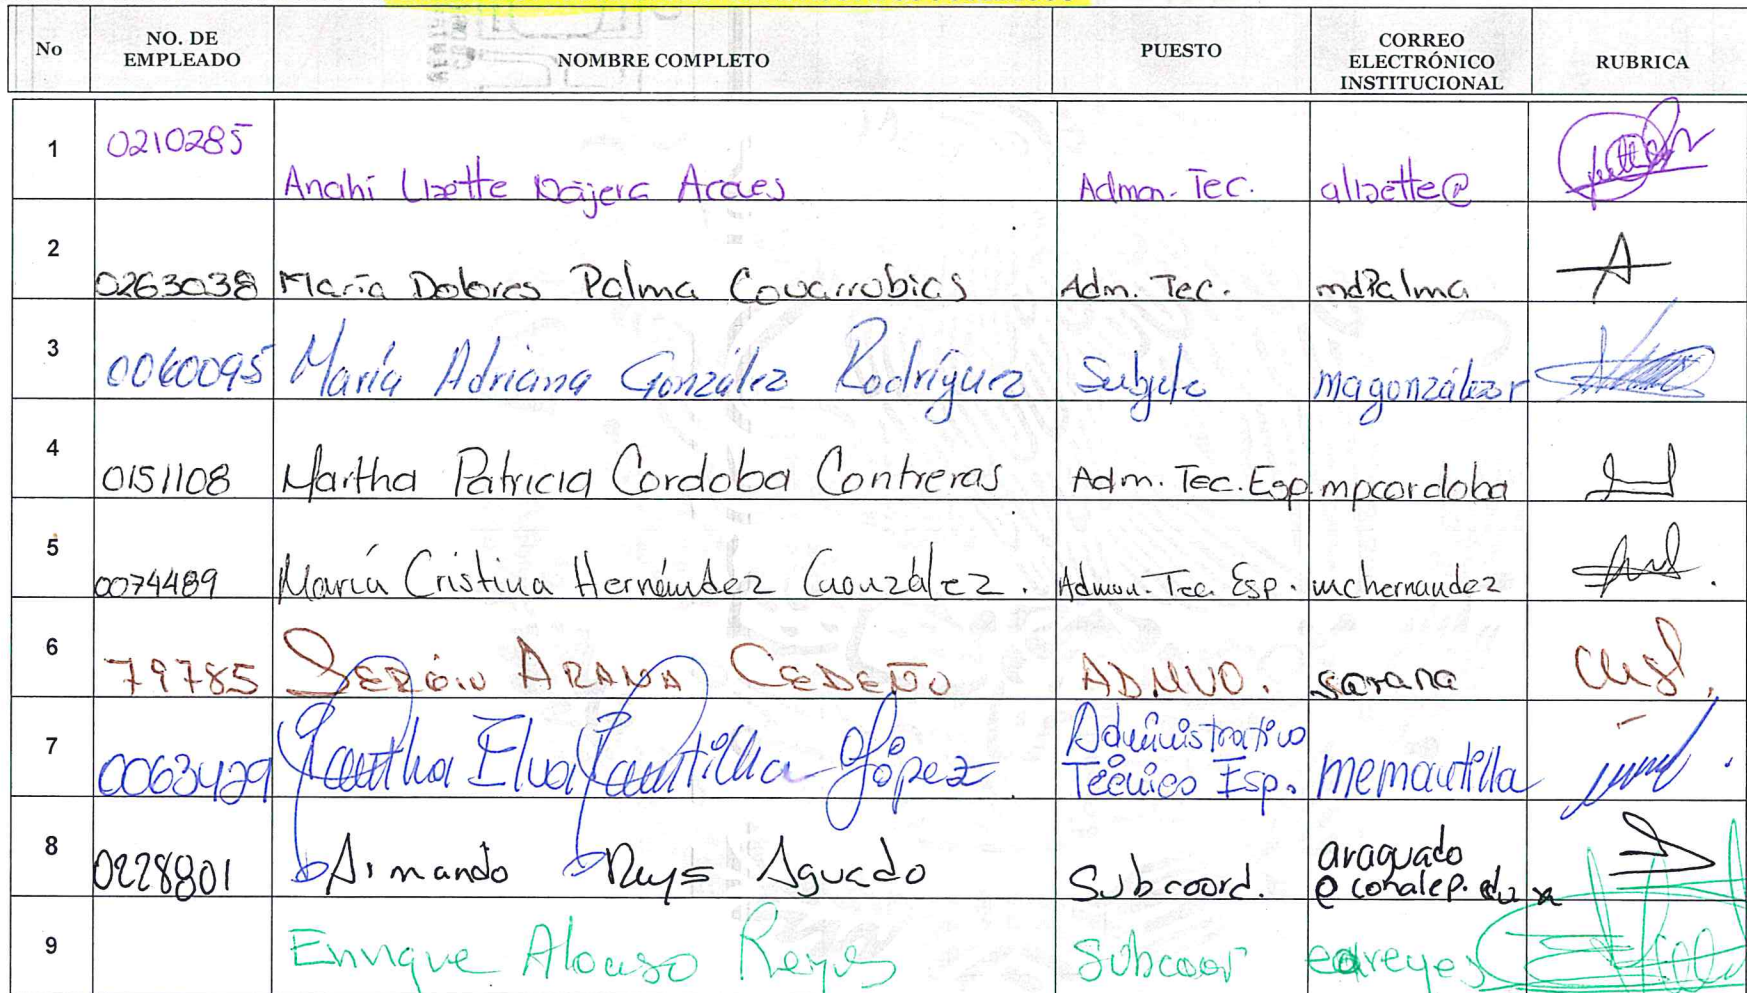 No NO. DE EMPLEADO NOMBRE COMPLETO PUESTO CORREO ELECTRÓNICO INSTITUCIONAL RUBRICA
1 0210285 Anahí Lizette Nájera Acaes Admon. Tec. alizette@
2 0263038 María Dolores Palma Covarrubias Adm. Tec. mdPalma
3 0060095 María Adriana González Rodríguez Subjefe magonzálezr
4 0151108 Martha Patricia Cordoba Contreras Adm. Tec. Esp. mpcordoba
5 0074489 María Cristina Hernández González. Admon. Tec. Esp. mchernandez
6 79785 SERGIO ARANA CEDEÑO ADMVO. sarana
7 0063429 Martha Elva Mantilla López Administrativo Técnico Esp. memantilla
8 0228801 Armando Reyes Aguado Subcoord. araguado @conalep.edu
9 Enrique Alonso Reyes Subcoor eareyes